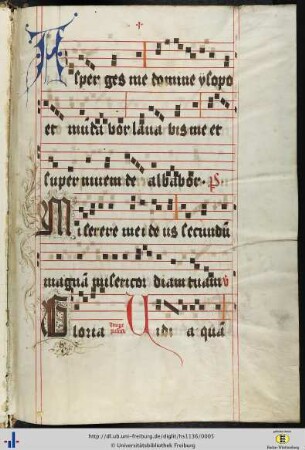 Asper ges me domine ysopo
et mūdabor lava bis me et
super nivem de albabor. ps
Miserere mei deus secundū
magnā misericor diam tuam v
Gloria Vidi aquā
http://dl.ub.uni-freiburg.de/diglit/hs1136/0005
© Universitätsbibliothek Freiburg